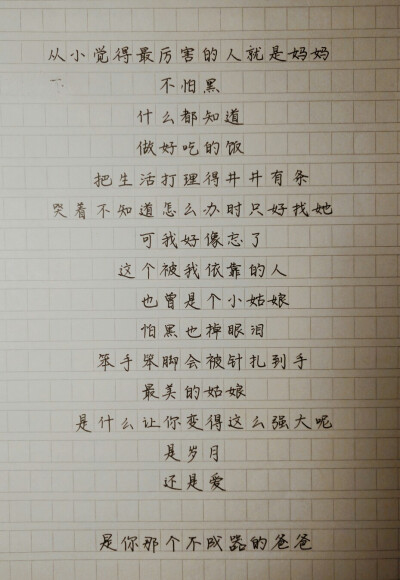 从小觉得最厉害的人就是妈妈
不怕黑
什么都知道
做好吃的饭
把生活打理得井井有条
哭着不知道怎么办时只好找她
可我好像忘了
这个被我依靠的人
也曾是个小姑娘
怕黑也掉眼泪
笨手笨脚会被针扎到手
最美的姑娘
是什么让你变得这么强大呢
是岁月
还是爱
是你那个不成器的爸爸